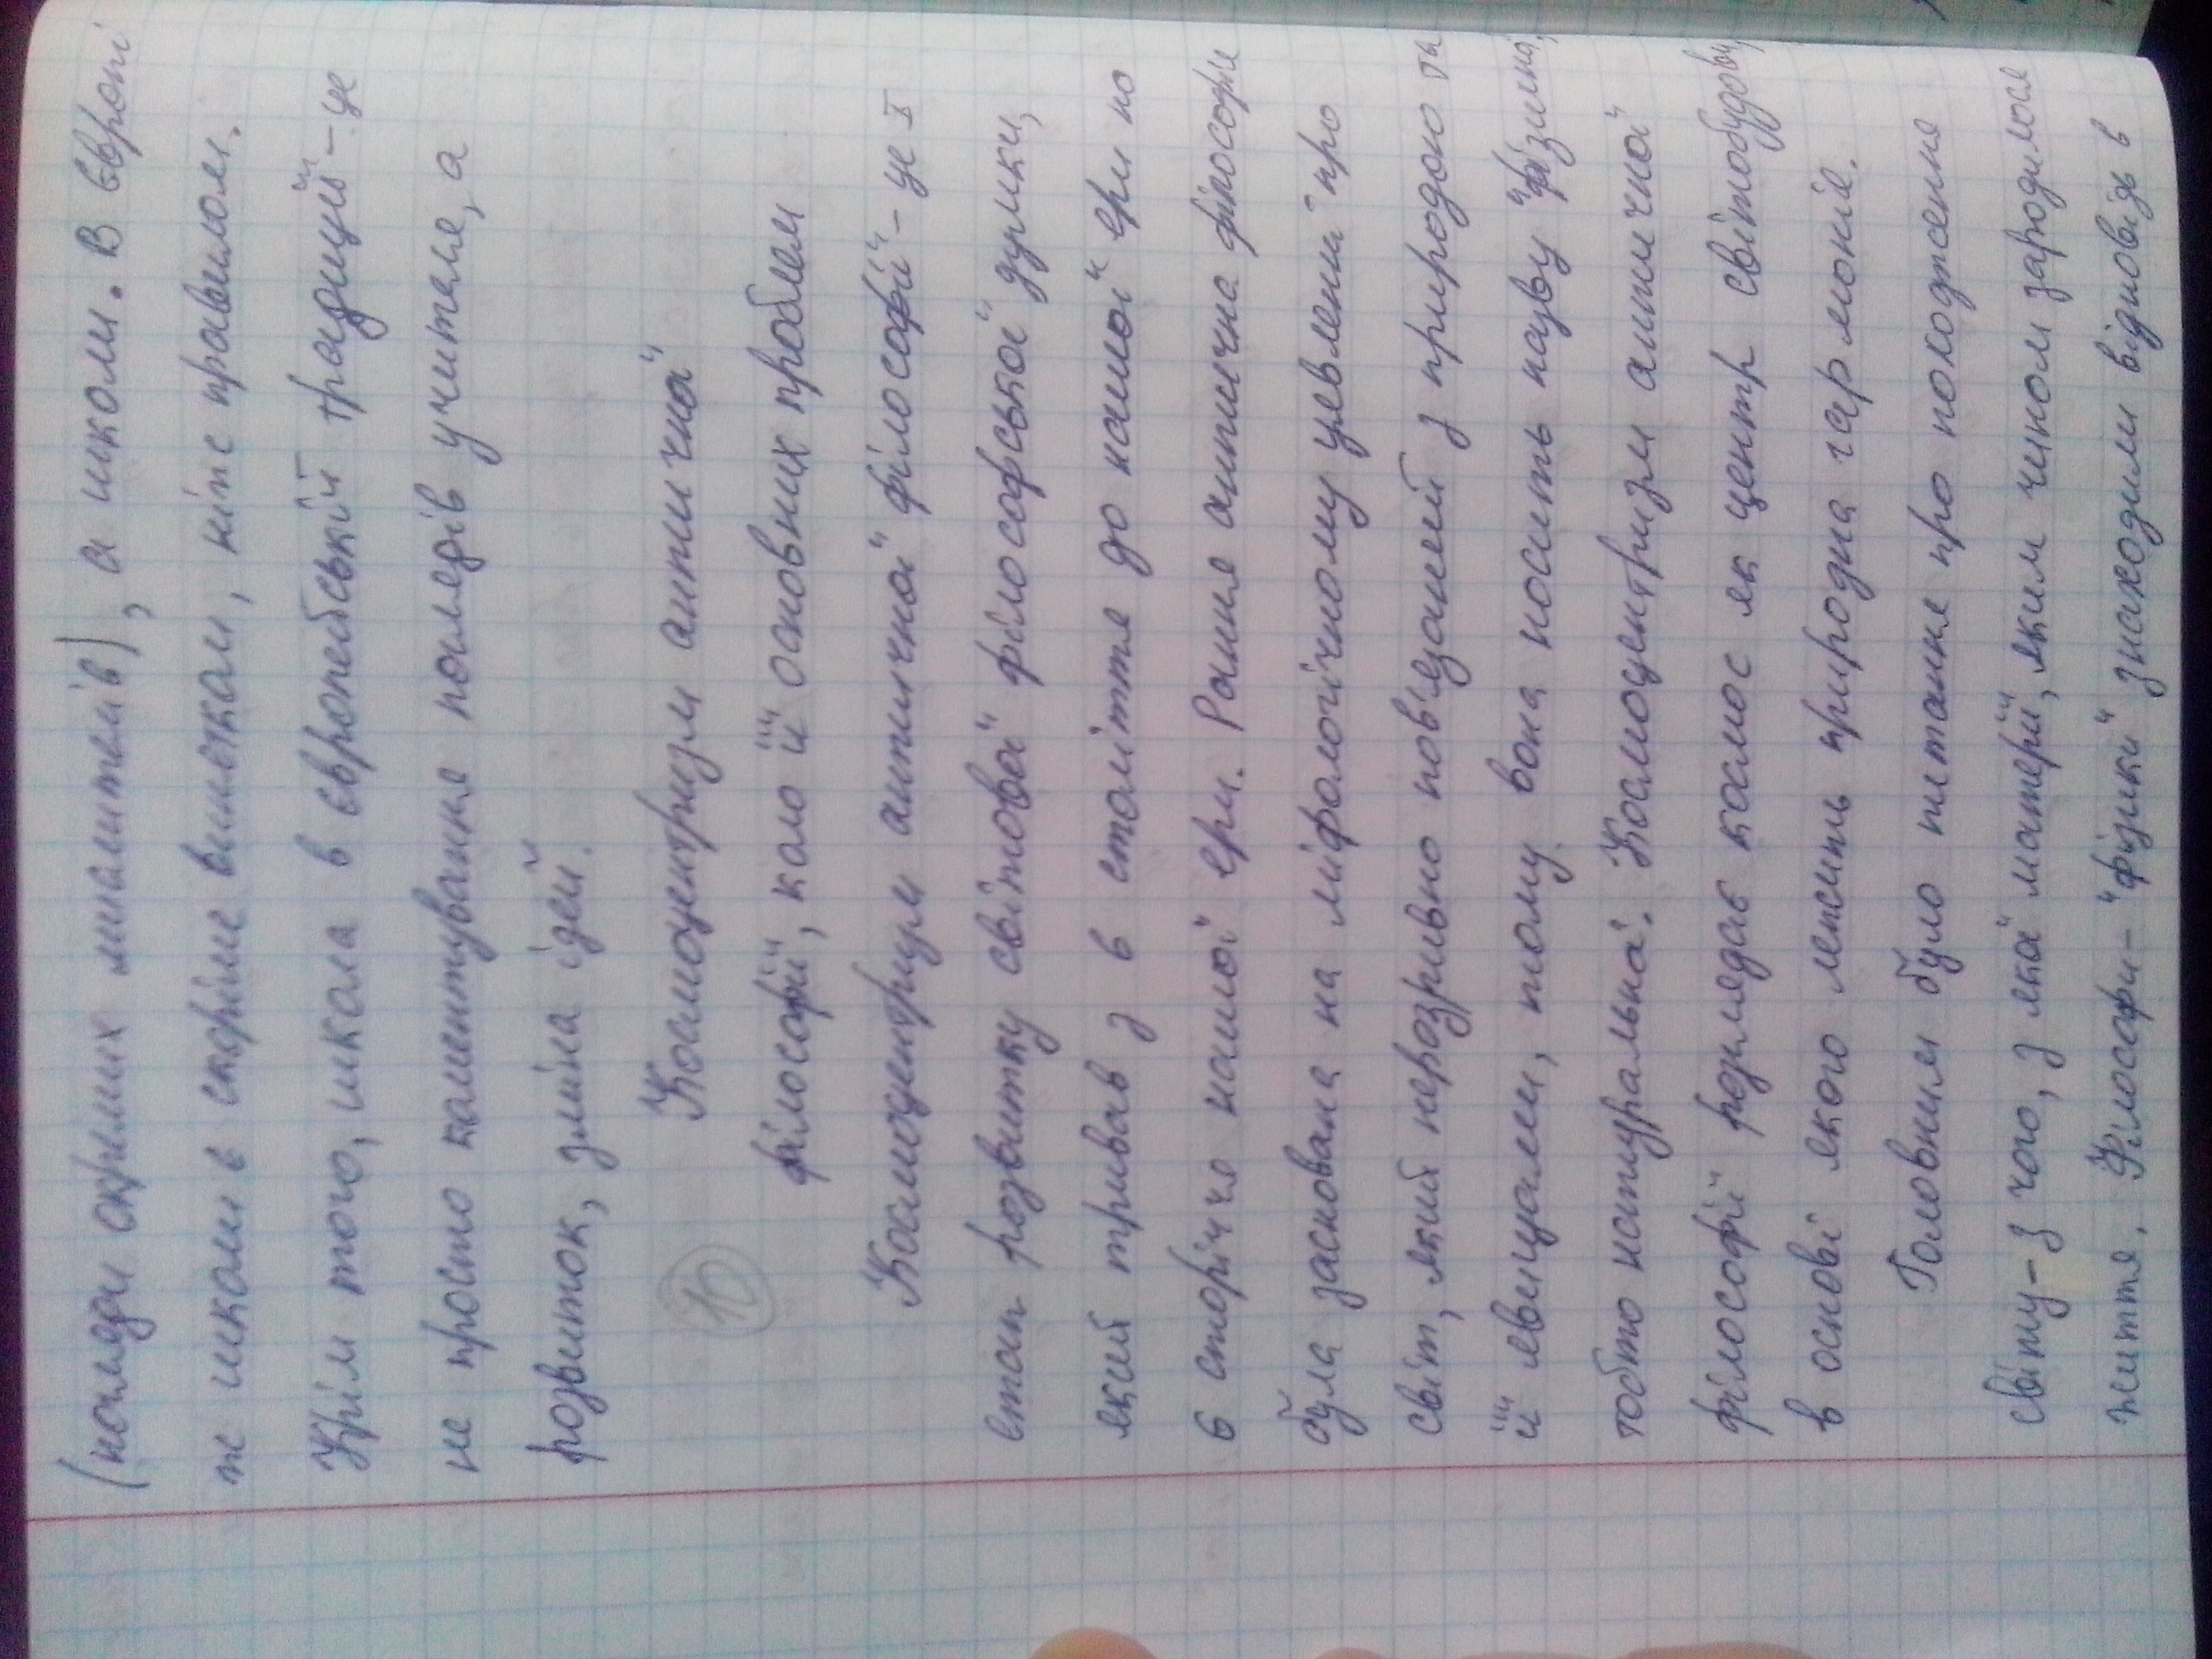 (погляди окремих мислителів), а школи. В Європі
ж школи є скоріше винятком, ніж правилом.
Крім того, школа в європейській традиції - це
не просто коментування поглядів учителя, а
розвиток, зміна ідей.
10 Космоцентризм античної
філософії, коло її основних проблем
Космоцентризм античної філософії - це I
етап розвитку світової філософської думки,
який тривав з 6 століття до нашої ери по
6 сторіччя нашої ери. Рання антична філософія
була заснована на міфологічному уявленні про
світ, який нерозривно пов'язаний з природою та
її явищами, тому вона носить назву "фізична",
тобто натуральна. Космоцентризм античної
філософії розглядає космос як центр світобудови,
в основі якого лежить природна гармонія.
Головним було питання про походження
світу - з чого, з якої матерії, яким чином зародилося
життя. Філософи - "фізики" знаходили відповідь в